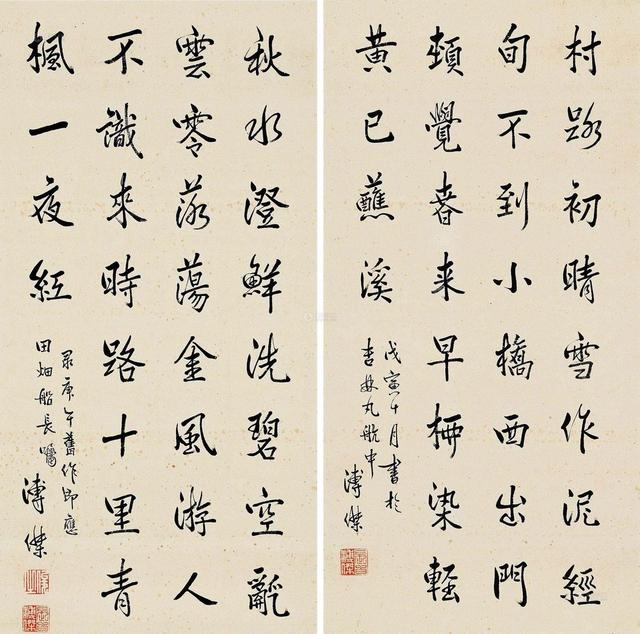 村路初晴雪作泥經
旬不到小橋西出門
頓覺春来早柳染輕
黃已蘸溪
戊寅十月書於
吉林丸航中
溥傑
秋水澄鮮洗碧空亂
雲零落蕩金風游人
不識來時路十里青
楓一夜紅
录庚午舊作即應
田畑船長囑
溥傑